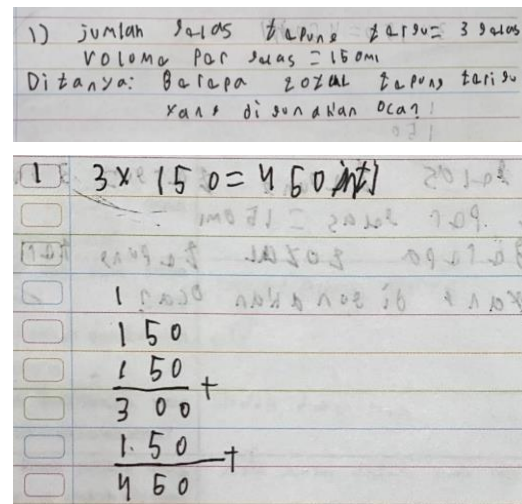 1) jumlah gelas tepung terigu = 3 gelas
volome per gelas = 150ml
Ditanya: Berapa total tepung terigu
yang digunakan Oca?
1 3 x 150 = 450 ml
1
150
150 +
300
150 +
450